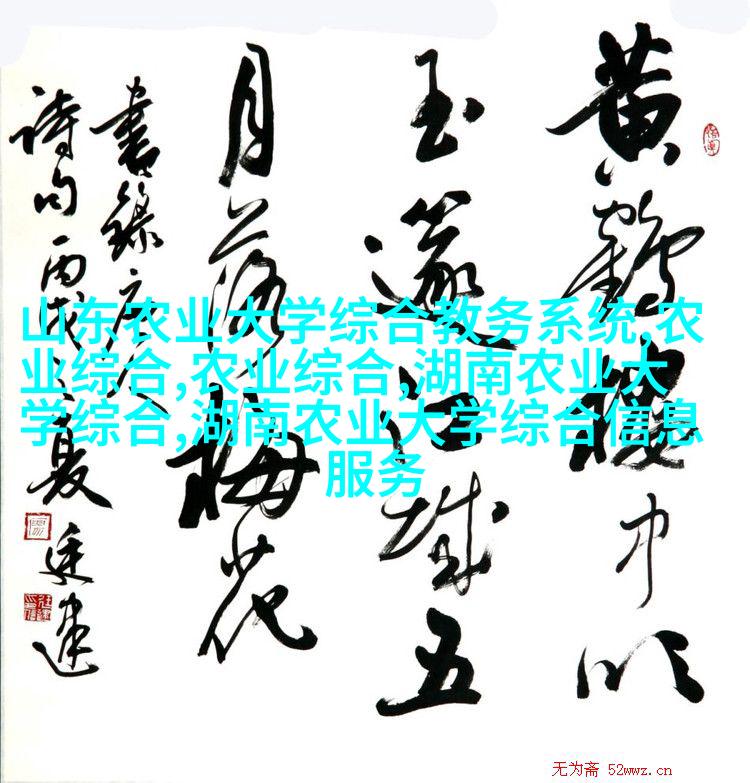 黄鶴樓中吹
玉篴江城五
月落梅花
書錄唐人
詩句丙戌之夏
山东农业大学综合教务系统,农
业综合,农业综合,湖南农业大
学综合,湖南农业大学综合信息
服务
无为斋 52wwz.cn